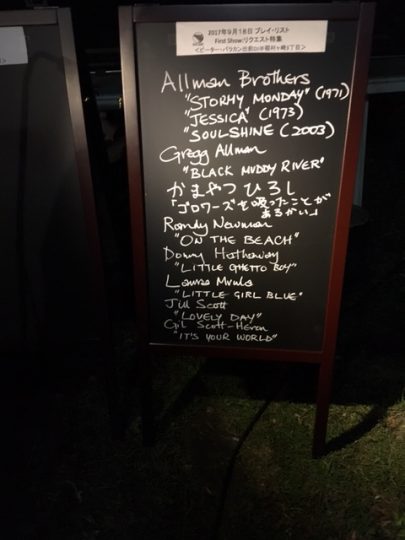 2017年9月18日 プレイ・リスト
First Show:リクエスト特集
Allman Brothers
"STORMY MONDAY" (1971)
"JESSICA" (1973)
"SOULSHINE (2003)
Gregg Allman
"BLACK MUDDY RIVER"
かまやつひろし
「ゴロワーズを吸ったことが
あるかい」
Randy Newman
"ON THE BEACH"
Donny Hathaway
"LITTLE GHETTO BOY"
Laura Mvula
"LITTLE GIRL BLUE"
Jill Scott
"LOVELY DAY"
Gil Scott-Heron
"IT'S YOUR WORLD"